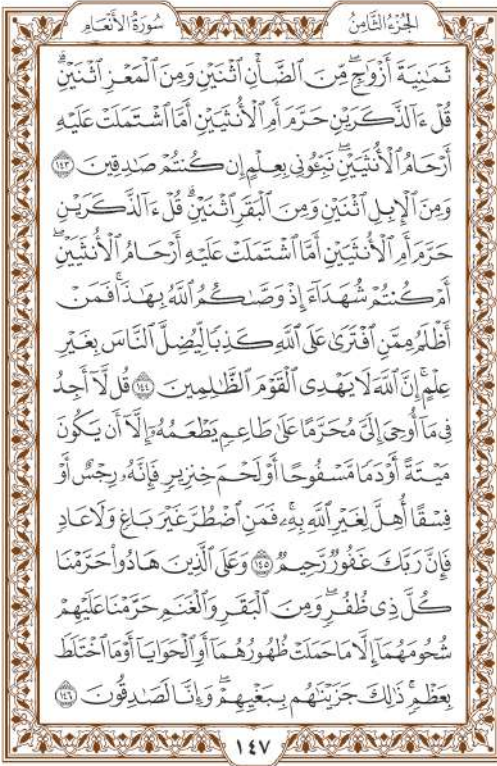 الجُزْءُ الثَّامِنُ
سُورَةُ الأَنْعَامِ
ثَمَٰنِيَةَ أَزْوَٰجٍۖ مِّنَ ٱلضَّأْنِ ٱثْنَيْنِ وَمِنَ ٱلْمَعْزِ ٱثْنَيْنِۗ
قُلْ ءَآلذَّكَرَيْنِ حَرَّمَ أَمِ ٱلْأُنثَيَيْنِ أَمَّا ٱشْتَمَلَتْ عَلَيْهِ
أَرْحَامُ ٱلْأُنثَيَيْنِۖ نَبِّـُٔونِي بِعِلْمٍ إِن كُنتُمْ صَٰدِقِينَ ١٤٣
وَمِنَ ٱلْإِبِلِ ٱثْنَيْنِ وَمِنَ ٱلْبَقَرِ ٱثْنَيْنِۗ قُلْ ءَآلذَّكَرَيْنِ
حَرَّمَ أَمِ ٱلْأُنثَيَيْنِ أَمَّا ٱشْتَمَلَتْ عَلَيْهِ أَرْحَامُ ٱلْأُنثَيَيْنِۖ
أَمْ كُنتُمْ شُهَدَآءَ إِذْ وَصَّىٰكُمُ ٱللَّهُ بِهَٰذَاۚ فَمَنْ
أَظْلَمُ مِمَّنِ ٱفْتَرَىٰ عَلَى ٱللَّهِ كَذِبًا لِّيُضِلَّ ٱلنَّاسَ بِغَيْرِ
عِلْمٍۚ إِنَّ ٱللَّهَ لَا يَهْدِي ٱلْقَوْمَ ٱلظَّٰلِمِينَ ١٤٤ قُل لَّآ أَجِدُ
فِي مَآ أُوحِيَ إِلَيَّ مُحَرَّمًا عَلَىٰ طَاعِمٍ يَطْعَمُهُۥٓ إِلَّآ أَن يَكُونَ
مَيْتَةً أَوْ دَمًا مَّسْفُوحًا أَوْ لَحْمَ خِنزِيرٍ فَإِنَّهُۥ رِجْسٌ أَوْ
فِسْقًا أُهِلَّ لِغَيْرِ ٱللَّهِ بِهِۦۚ فَمَنِ ٱضْطُرَّ غَيْرَ بَاغٍ وَلَا عَادٍ
فَإِنَّ رَبَّكَ غَفُورٌ رَّحِيمٌ ١٤٥ وَعَلَى ٱلَّذِينَ هَادُوا۟ حَرَّمْنَا
كُلَّ ذِي ظُفُرٍۖ وَمِنَ ٱلْبَقَرِ وَٱلْغَنَمِ حَرَّمْنَا عَلَيْهِمْ
شُحُومَهُمَآ إِلَّا مَا حَمَلَتْ ظُهُورُهُمَآ أَوِ ٱلْحَوَايَآ أَوْ مَا ٱخْتَلَطَ
بِعَظْمٍۚ ذَٰلِكَ جَزَيْنَٰهُم بِبَغْيِهِمْۖ وَإِنَّا لَصَٰدِقُونَ ١٤٦
١٤٧